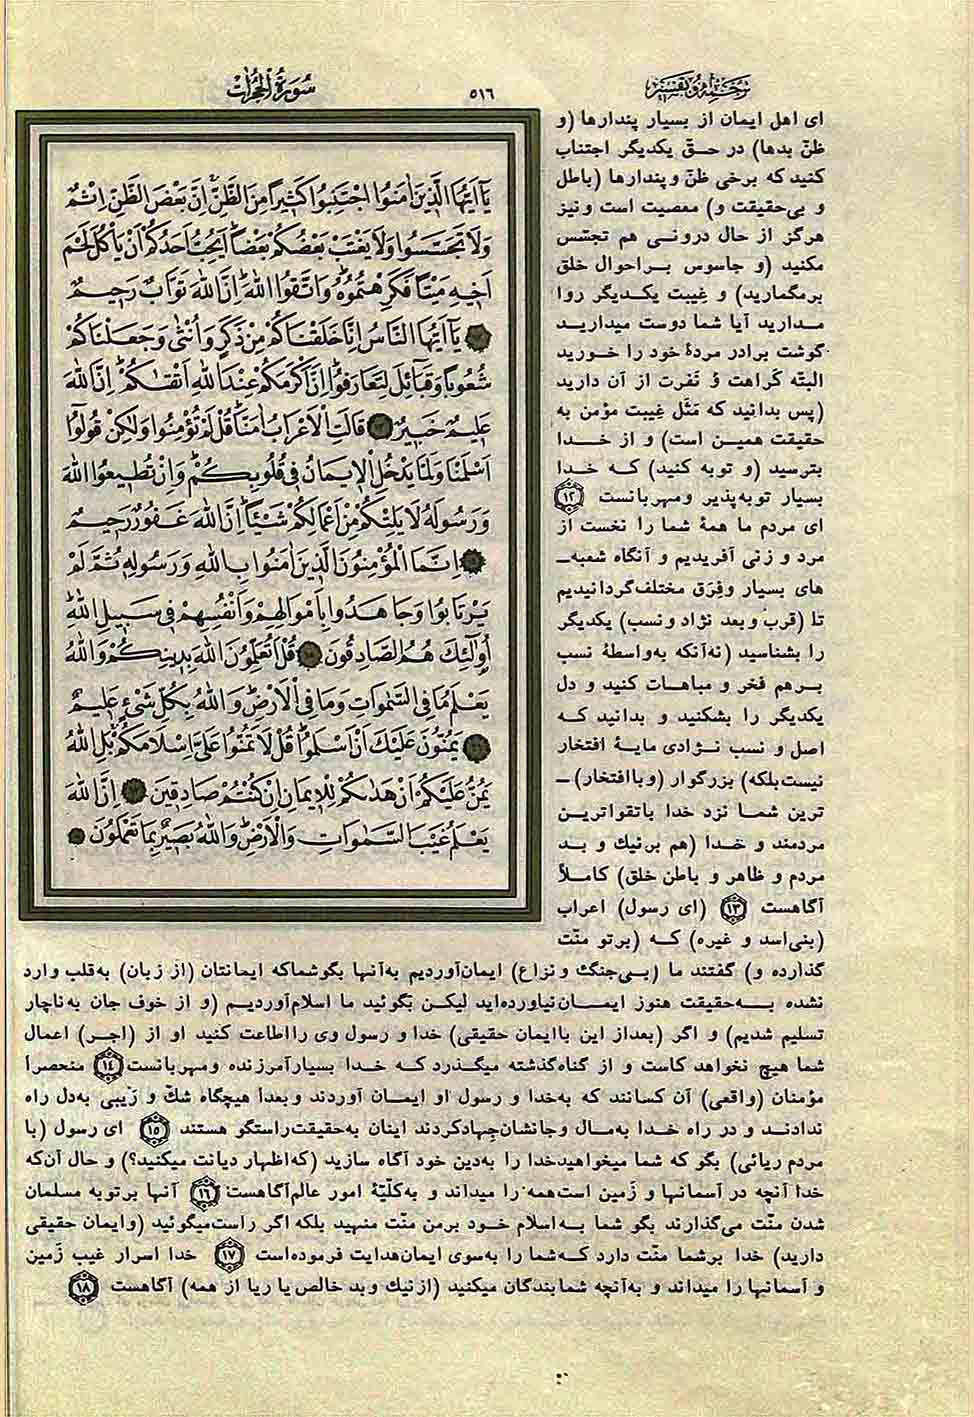 ترجمه و تفسیر
٥١٦
سُورَةُ الْحُجُرَاتِ
يَا أَيُّهَا الَّذِينَ اٰمَنُوا اجْتَنِبُوا كَثِيرًا مِنَ الظَّنِّ اِنَّ بَعْضَ الظَّنِّ اِثْمٌ
وَلَا تَجَسَّسُوا وَلَا يَغْتَبْ بَعْضُكُمْ بَعْضًا اَيُحِبُّ اَحَدُكُمْ اَنْ يَأْكُلَ لَحْمَ
اَخِيهِ مَيْتًا فَكَرِهْتُمُوهُ وَاتَّقُوا اللّٰهَ اِنَّ اللّٰهَ تَوَّابٌ رَحِيمٌ
يَا أَيُّهَا النَّاسُ اِنَّا خَلَقْنَاكُمْ مِنْ ذَكَرٍ وَاُنْثٰى وَجَعَلْنَاكُمْ
شُعُوبًا وَقَبَائِلَ لِتَعَارَفُوا اِنَّ اَكْرَمَكُمْ عِنْدَ اللّٰهِ اَتْقٰىكُمْ اِنَّ اللّٰهَ
عَلِيمٌ خَبِيرٌ قَالَتِ الْاَعْرَابُ اٰمَنَّا قُلْ لَمْ تُؤْمِنُوا وَلٰكِنْ قُولُوا
اَسْلَمْنَا وَلَمَّا يَدْخُلِ الْاِيمَانُ فِي قُلُوبِكُمْ وَاِنْ تُطِيعُوا اللّٰهَ
وَرَسُولَهُ لَا يَلِتْكُمْ مِنْ اَعْمَالِكُمْ شَيْئًا اِنَّ اللّٰهَ غَفُورٌ رَحِيمٌ
اِنَّمَا الْمُؤْمِنُونَ الَّذِينَ اٰمَنُوا بِاللّٰهِ وَرَسُولِهِ ثُمَّ لَمْ
يَرْتَابُوا وَجَاهَدُوا بِاَمْوَالِهِمْ وَاَنْفُسِهِمْ فِي سَبِيلِ اللّٰهِ
اُولٰئِكَ هُمُ الصَّادِقُونَ قُلْ اَتُعَلِّمُونَ اللّٰهَ بِدِينِكُمْ وَاللّٰهُ
يَعْلَمُ مَا فِي السَّمٰوَاتِ وَمَا فِي الْاَرْضِ وَاللّٰهُ بِكُلِّ شَيْءٍ عَلِيمٌ
يَمُنُّونَ عَلَيْكَ اَنْ اَسْلَمُوا قُلْ لَا تَمُنُّوا عَلَيَّ اِسْلَامَكُمْ بَلِ اللّٰهُ
يَمُنُّ عَلَيْكُمْ اَنْ هَدٰىكُمْ لِلْاِيمَانِ اِنْ كُنْتُمْ صَادِقِينَ اِنَّ اللّٰهَ
يَعْلَمُ غَيْبَ السَّمٰوَاتِ وَالْاَرْضِ وَاللّٰهُ بَصِيرٌ بِمَا تَعْمَلُونَ
ای اهل ایمان از بسیار پندارها (و
ظنّ بدها) در حقّ یکدیگر اجتناب
کنید که برخی ظنّ و پندارها (باطل
و بی‌حقیقت و) معصیت است و نیز
هرگز از حال درونی هم تجسّس
مکنید (و جاسوس بر احوال خلق
برمگمارید) و غیبت یکدیگر روا
مدارید آیا شما دوست میدارید
گوشت برادر مردهٔ خود را خورید
البتّه کراهت و نفرت از آن دارید
(پس بدانید که مَثَل غیبت مؤمن به
حقیقت همین است) و از خدا
بترسید (و توبه کنید) که خدا
بسیار توبه‌پذیر و مهربانست ١٢
ای مردم ما همهٔ شما را نخست از
مرد و زنی آفریدیم و آنگاه شعبه‌ـ
های بسیار و فِرَق مختلف گردانیدیم
تا (قرب و بعد نژاد و نسب) یکدیگر
را بشناسید (نه‌آنکه به‌واسطهٔ نسب
برهم فخر و مباهات کنید و دل
یکدیگر را بشکنید و بدانید که
اصل و نسب نژادی مایهٔ افتخار
نیست بلکه) بزرگوار (و باافتخار)ـ
ترین شما نزد خدا باتقواترین
مردمند و خدا (هم برنیك و بد
مردم و ظاهر و باطن خلق) کاملاً
آگاهست ١٣ (ای رسول) اعراب
(بنی‌اسد و غیره) که (برتو منّت
گذارده و) گفتند ما (بی‌جنگ و نزاع) ایمان‌آوردیم به‌آنها بگو شما که ایمانتان (از زبان) به‌قلب وارد
نشده به‌حقیقت هنوز ایمان نیاورده‌اید لیکن بگوئید ما اسلام‌آوردیم (و از خوف جان به‌ناچار
تسلیم شدیم) و اگر (بعد از این با ایمان حقیقی) خدا و رسول وی را اطاعت کنید او از (اجر) اعمال
شما هیچ نخواهد کاست و از گناه گذشته میگذرد که خدا بسیار آمرزنده و مهربانست ١٤ منحصراً
مؤمنان (واقعی) آن کسانند که به‌خدا و رسول او ایمان آوردند و بعداً هیچگاه شكّ و ریبی به‌دل راه
ندادند و در راه خدا به‌مال و جانشان جهاد کردند اینان به‌حقیقت راستگو هستند ١٥ ای رسول (با
مردم ریائی) بگو که شما میخواهید خدا را به‌دین خود آگاه سازید (که اظهار دیانت میکنید؟) و حال آن‌که
خدا آنچه در آسمانها و زمین است همه را میداند و به‌کلّیّهٔ امور عالم آگاهست ١٦ آنها برتو به مسلمان
شدن منّت می‌گذارند بگو شما به‌اسلام خود برمن منّت منهید بلکه اگر راست میگوئید (و ایمان حقیقی
دارید) خدا برشما منّت دارد که شما را به‌سوی ایمان هدایت فرموده‌است ١٧ خدا اسرار غیب زمین
و آسمانها را میداند و به‌آنچه شما بندگان میکنید (از نیك و بد خالص یا ریا از همه) آگاهست ١٨